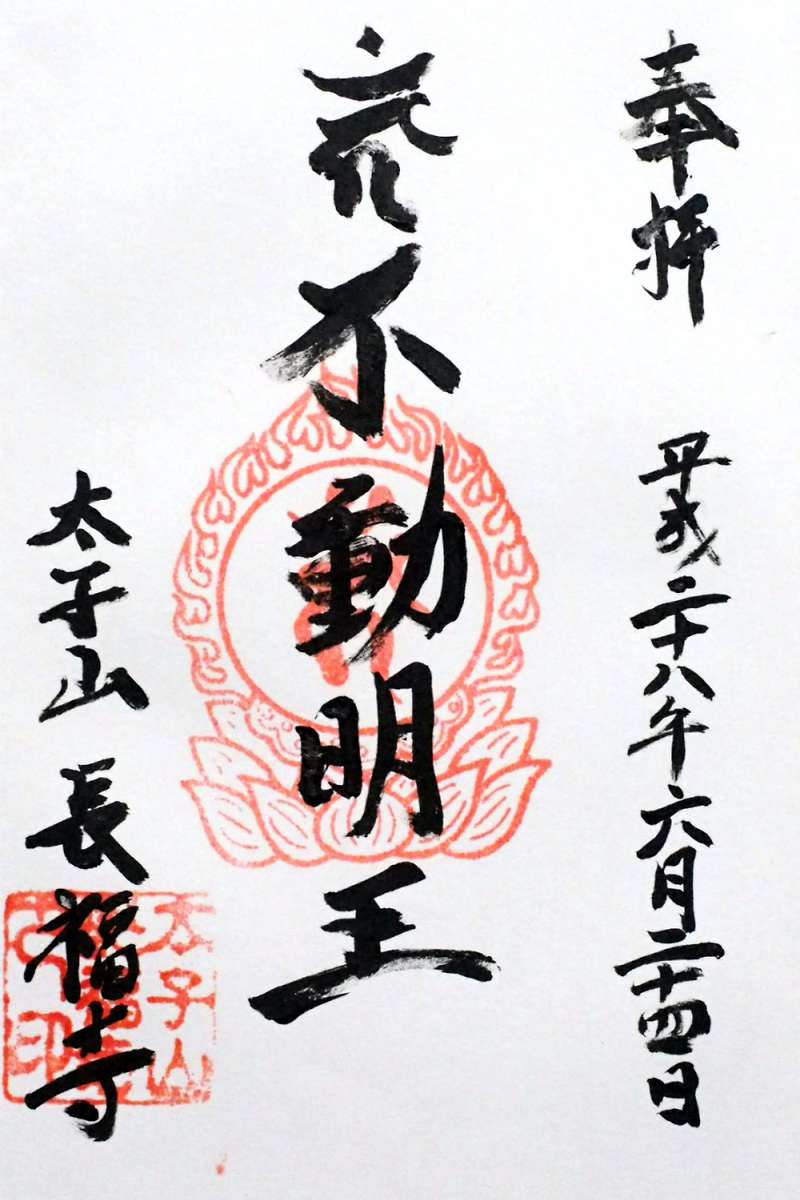 奉拝
平成二十八年六月二十四日
不動明王
太子山 長福寺
太子山